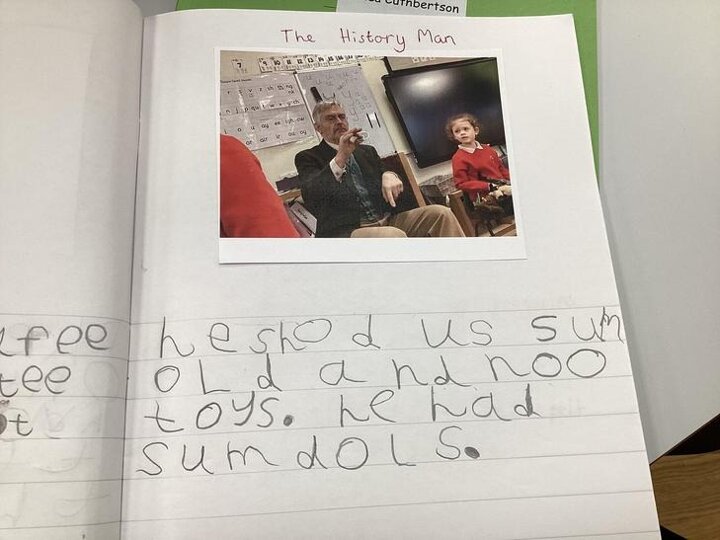 Cuthbertson
The History Man
heshod us sum
old and noo
toys. he had
sum dols.
fee
tee